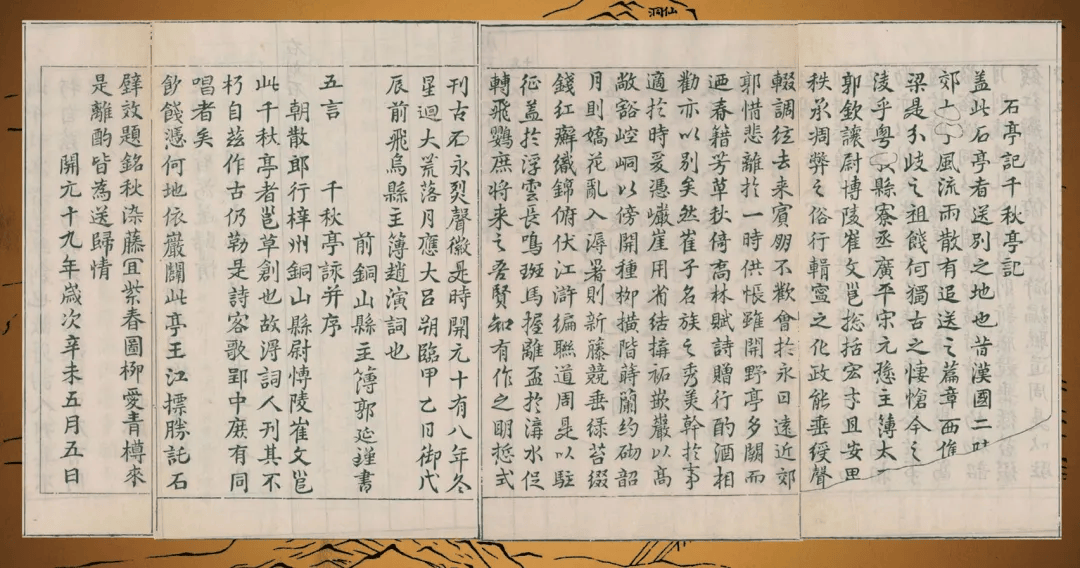 洞仙
石亭記千秋亭記
蓋此石亭者送別之地也昔漢國二
郊七子風流雨散有追送之篇章西惟
梁是分歧之祖餞何獨古之悽愴今之
陵乎粵縣寮丞廣平宋元愻主簿太
郭欽讓尉博陵崔文邕揔括宏才且安里
秩承凋弊之俗行輯寧之化政能垂綬聲
輟調絃去來賓朋不歡會於永日遠近郊
郭惜悲離於一時供帳雖開野亭多闕而
迺春籍芳草秋倚高林賦詩贈行酌酒相
勸亦以別矣然崔子名族之秀美幹於事
適於時爰憑巖崖用省結搆祏嵌巖以高
敞豁崆峒以傍開種柳撗階蒔蘭約砌韶
月則嬌花亂入溽暑則新藤競垂綠苔綴
錢紅蘚織錦俯伏江滸編聯道周是以駐
征蓋於浮雲長鳴班馬握離盃於溝水促
轉飛鸚庶將來之吾賢知有作之明懲式
刊古石永裂聲徽是時開元十有八年冬
星迴大荒落月應大呂朔臨甲乙日御戊
辰前飛烏縣主簿趙演詞也
前銅山縣主簿郭延瑾書
五言　千秋亭詠并序
朝散郎行梓州銅山縣尉博陵崔文邕
此千秋亭者邕草創也故潯詞人刊其不
朽自茲作古仍勒是詩客歌郢中庶有同
唱者矣
飲餞憑何地依巖闢此亭王江摽勝託石
壁效題銘秋染藤冝紫春圖柳愛青樽來
是離酌皆為送歸情
開元十九年歲次辛未五月五日